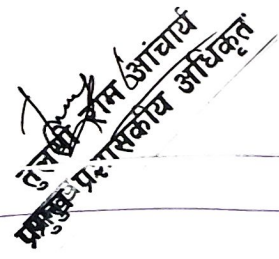 तुलसी राम आचार्य
प्रमुख प्रशासकीय अधिकृत